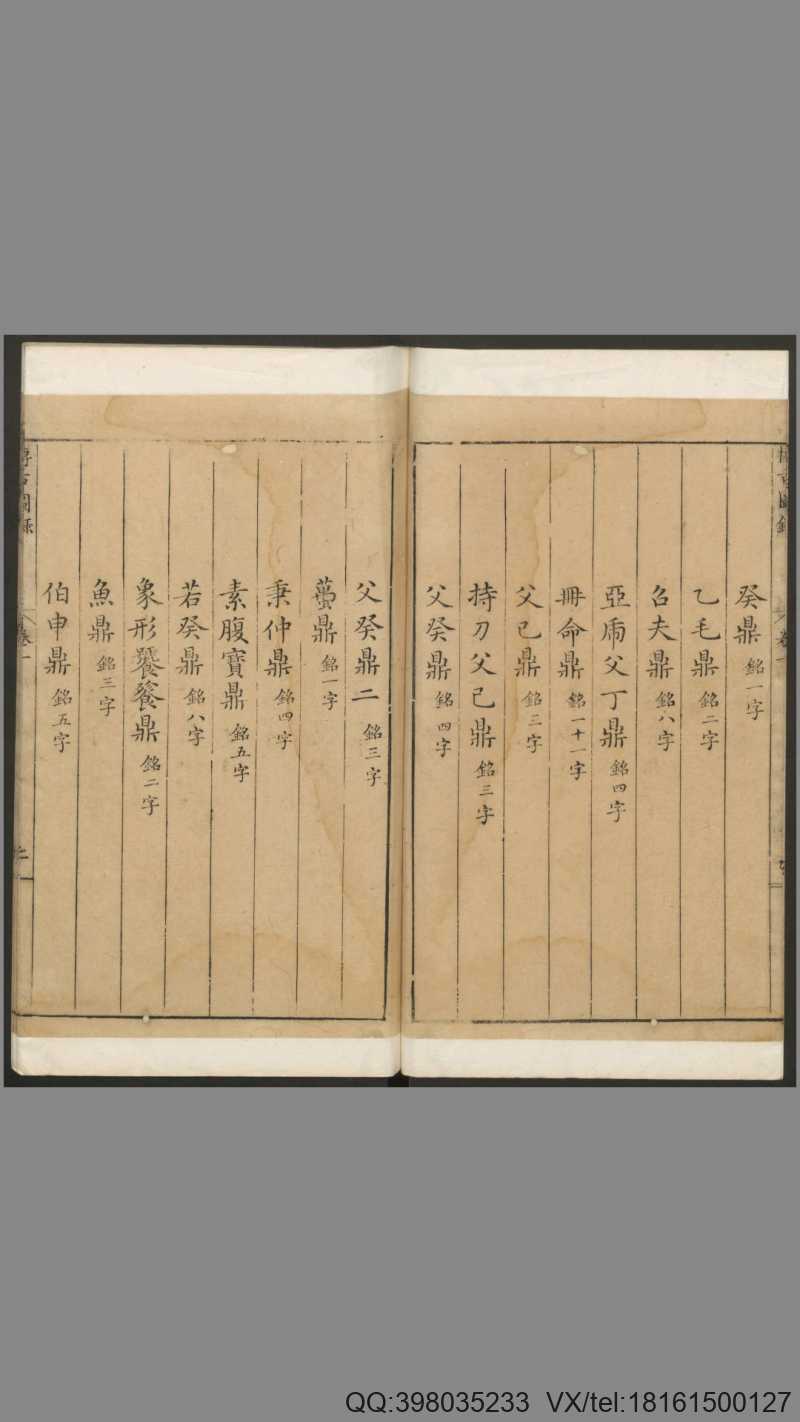 癸鼎 銘一字
乙毛鼎 銘二字
召夫鼎 銘八字
亞虎父丁鼎 銘四字
冊命鼎 銘一十一字
父己鼎 銘三字
持刀父己鼎 銘三字
父癸鼎 銘四字
父癸鼎二 銘三字
蠆鼎 銘一字
秉仲鼎 銘四字
素腹寶鼎 銘五字
若癸鼎 銘八字
象形饕餮鼎 銘二字
魚鼎 銘三字
伯申鼎 銘五字
博古圖錄
卷一
QQ:398035233 VX/tel:18161500127